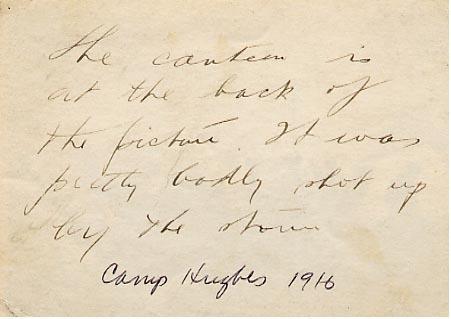 The canteen is
at the back of
the picture. It was
pretty badly shot up
by the storm
Camp Hughes 1916